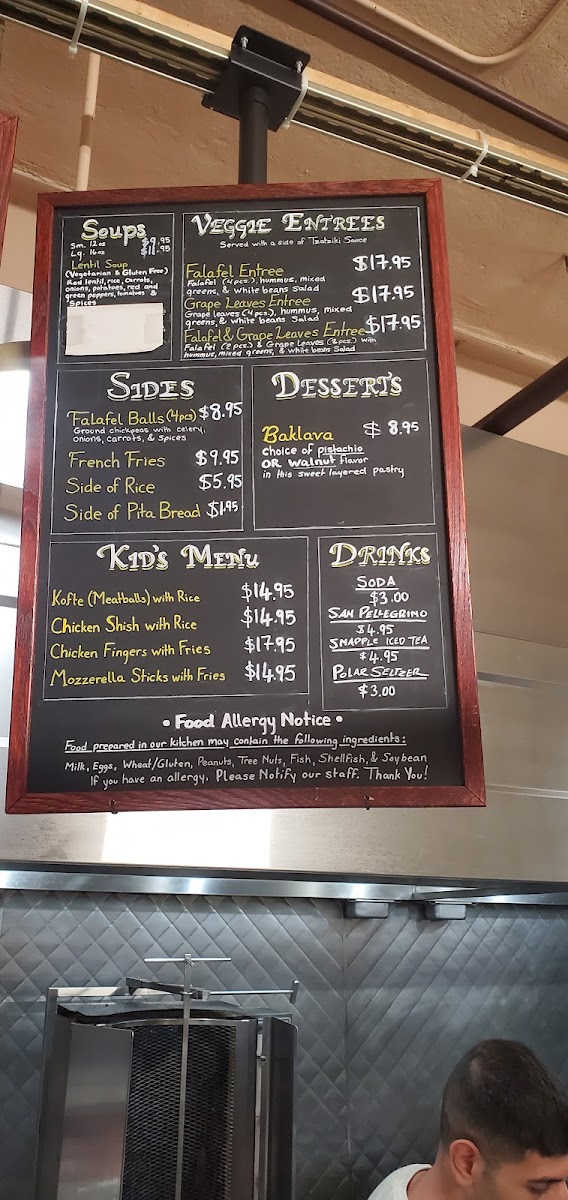 Soups
Sm. 12oz $9.95
Lg. 16oz $11.95
Lentil Soup
(Vegetarian & Gluten Free)
Red lentil, rice, Carrots,
onions, potatoes, red and
green peppers, tomatoes &
Spices
VEGGIE ENTREES
Served with a side of Tzatziki Sauce
Falafel Entree $17.95
Falafel (4 pcs.), hummus, mixed
greens, & white beans Salad
Grape Leaves Entree $17.95
Grape leaves (4 pcs.), hummus, mixed
greens, & white beans Salad
Falafel & Grape Leaves Entree $17.95
Falafel (2 pcs.) & Grape Leaves (3 pcs.) with
hummus, mixed greens, & white beans Salad
SIDES
Falafel Balls (4pcs) $8.95
Ground chickpeas with celery,
onions, carrots, & spices
French Fries $9.95
Side of Rice $5.95
Side of Pita Bread $1.95
DESSERTS
Baklava $8.95
choice of pistachio
OR walnut flavor
in this sweet layered pastry
KID'S MENU
Kofte (Meatballs) with Rice $14.95
Chicken Shish with Rice $14.95
Chicken Fingers with Fries $17.95
Mozzerella Sticks with Fries $14.95
DRINKS
SODA
$3.00
SAN PELLEGRINO
$4.95
SNAPPLE ICED TEA
$4.95
POLAR SELTZER
$3.00
• Food Allergy Notice •
Food prepared in our kitchen may contain the following ingredients:
Milk, Eggs, Wheat/Gluten, Peanuts, Tree Nuts, Fish, Shellfish, & Soybean
If you have an allergy, Please Notify our staff. Thank You!